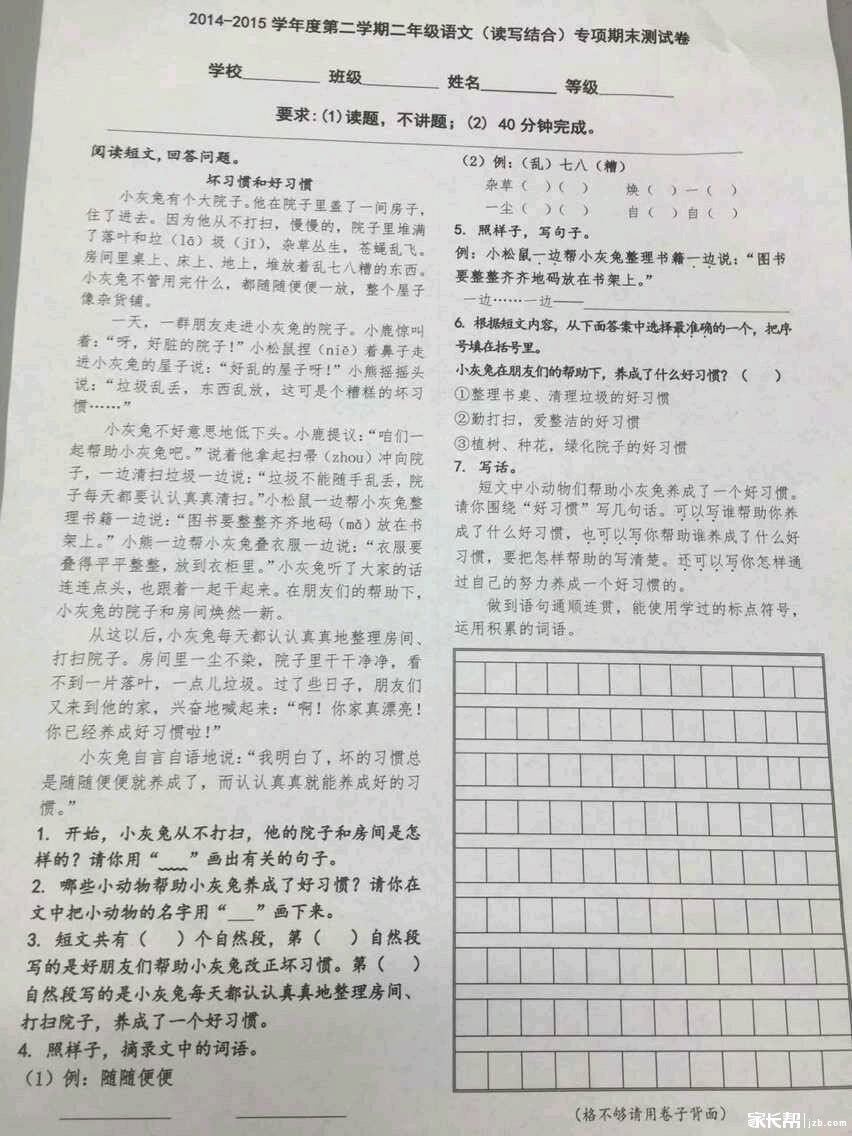 2014-2015学年度第二学期二年级语文（读写结合）专项期末测试卷
学校________ 班级________ 姓名________ 等级________
要求:(1)读题，不讲题；(2) 40分钟完成。
阅读短文,回答问题。
坏习惯和好习惯
小灰兔有个大院子。他在院子里盖了一间房子，
住了进去。因为他从不打扫，慢慢的，院子里堆满
了落叶和垃（lā）圾（jī），杂草丛生，苍蝇乱飞。
房间里桌上、床上、地上，堆放着乱七八糟的东西。
小灰兔不管用完什么，都随随便便一放，整个屋子
像杂货铺。
一天，一群朋友走进小灰兔的院子。小鹿惊叫
着：“呀，好脏的院子！”小松鼠捏（niē）着鼻子走
进小灰兔的屋子说：“好乱的屋子呀！”小熊摇摇头
说：“垃圾乱丢，东西乱放，这可是个糟糕的坏习
惯……”
小灰兔不好意思地低下头。小鹿提议：“咱们一
起帮助小灰兔吧。”说着他拿起扫帚（zhou）冲向院
子，一边清扫垃圾一边说：“垃圾不能随手乱丢，院
子每天都要认认真真清扫。”小松鼠一边帮小灰兔整
理书籍一边说：“图书要整整齐齐地码（mǎ）放在书
架上。”小熊一边帮小灰兔叠衣服一边说：“衣服要
叠得平平整整，放到衣柜里。”小灰兔听了大家的话
连连点头，也跟着一起干起来。在朋友们的帮助下，
小灰兔的院子和房间焕然一新。
从这以后,小灰兔每天都认认真真地整理房间、
打扫院子。房间里一尘不染，院子里干干净净，看
不到一片落叶，一点儿垃圾。过了些日子，朋友们
又来到他的家，兴奋地喊起来：“啊！你家真漂亮！
你已经养成好习惯啦！”
小灰兔自言自语地说：“我明白了，坏的习惯总
是随随便便就养成了，而认认真真就能养成好的习
惯。”
1. 开始，小灰兔从不打扫，他的院子和房间是怎
样的？请你用“﹏﹏”画出有关的句子。
2. 哪些小动物帮助小灰兔养成了好习惯？请你在
文中把小动物的名字用“___”画下来。
3. 短文共有（ ）个自然段，第（ ）自然段
写的是好朋友们帮助小灰兔改正坏习惯。第（ ）
自然段写的是小灰兔每天都认认真真地整理房间、
打扫院子，养成了一个好习惯。
4. 照样子，摘录文中的词语。
（1）例：随随便便
________ ________
（2）例：（乱）七八（糟）
杂草（ ）（ ） 焕（ ）一（ ）
一尘（ ）（ ） 自（ ）自（ ）
5. 照样子，写句子。
例：小松鼠一边帮小灰兔整理书籍一边说：“图书
要整整齐齐地码放在书架上。”
一边……一边——________________
6. 根据短文内容，从下面答案中选择最准确的一个，把序
号填在括号里。
小灰兔在朋友们的帮助下，养成了什么好习惯？（ ）
①整理书桌、清理垃圾的好习惯
②勤打扫，爱整洁的好习惯
③植树、种花，绿化院子的好习惯
7. 写话。
短文中小动物们帮助小灰兔养成了一个好习惯。
请你围绕“好习惯”写几句话。可以写谁帮助你养
成了什么好习惯，也可以写你帮助谁养成了什么好
习惯，要把怎样帮助的写清楚。还可以写你怎样通
过自己的努力养成一个好习惯的。
做到语句通顺连贯，能使用学过的标点符号，
运用积累的词语。
（格不够请用卷子背面）
家长帮 jzb.com